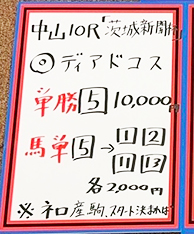 中山10R「茨城新聞杯」
◎ディアドコス
単勝5 10,000円
馬単5→1 2
11 13
各2,000円
※ネロ産駒、スタート決まれば